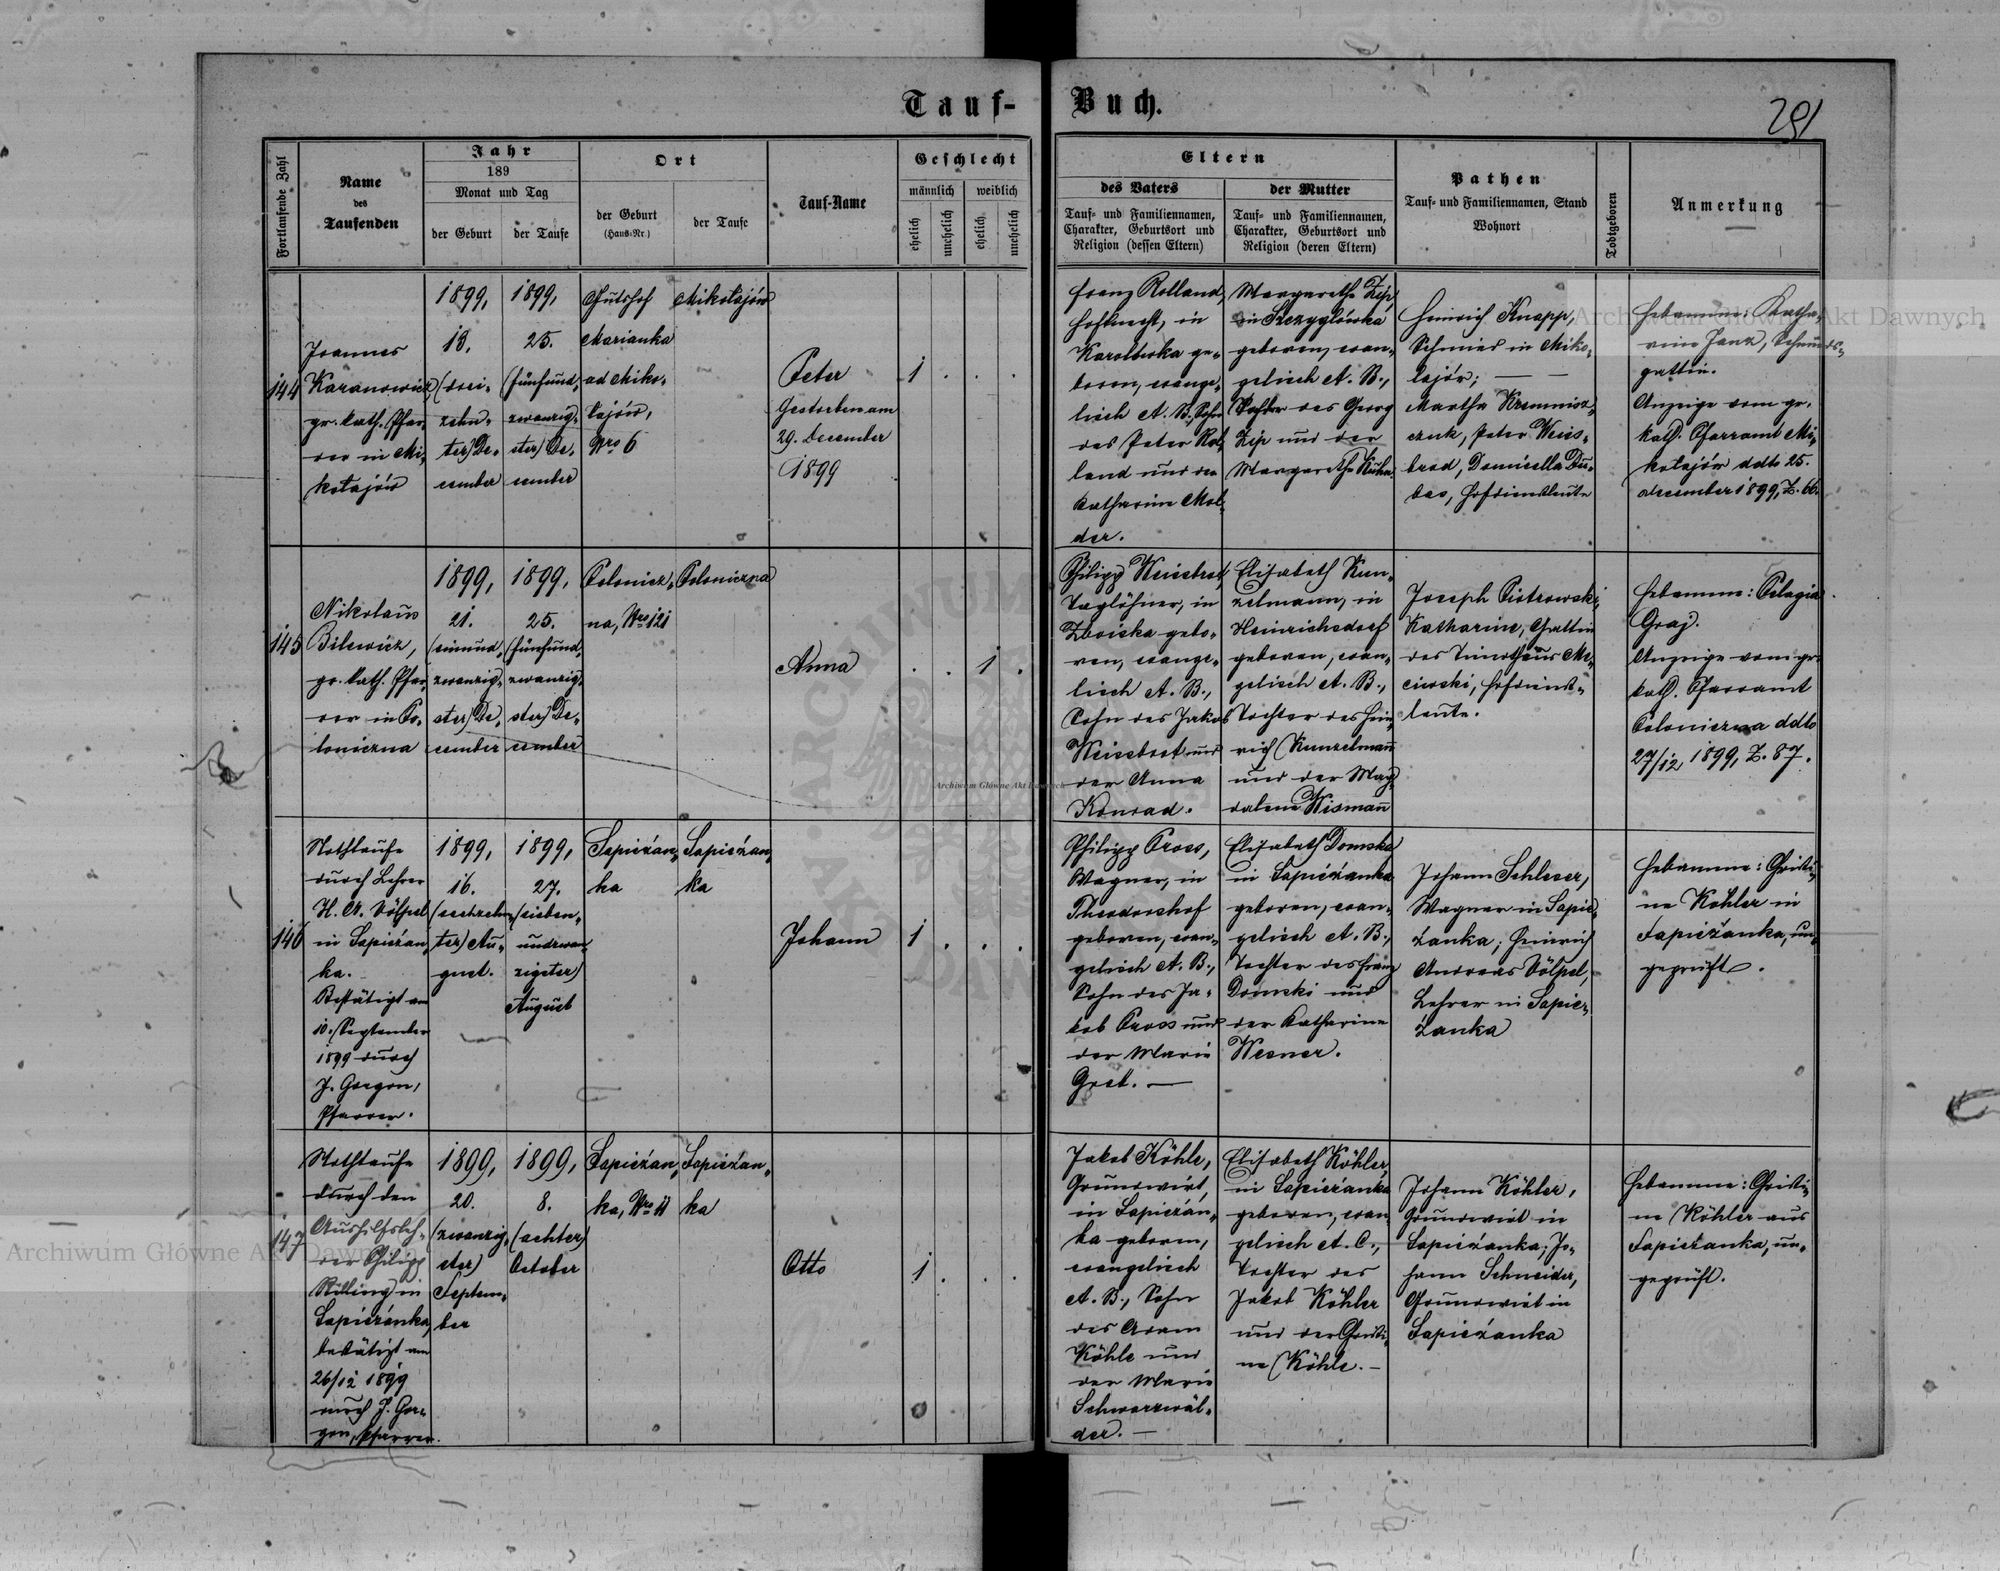 Tauf- Buch.
291
Fortlaufende Zahl
Name
des
Taufenden
Jahr
189
Monat und Tag
der Geburt
der Taufe
Ort
der Geburt
(Haus-Nr.)
der Taufe
Tauf-Name
Geschlecht
männlich
weiblich
ehelich
unehelich
ehelich
unehelich
Eltern
des Vaters
Tauf- und Familiennamen,
Charakter, Geburtsort und
Religion (dessen Eltern)
der Mutter
Tauf- und Familiennamen,
Charakter, Geburtsort und
Religion (deren Eltern)
Pathen
Tauf- und Familiennamen, Stand
Wohnort
Todtgeboren
Anmerkung
144
Joannes
Karanowicz,
gr. kath. Pfar-
rer in Mi-
kołajów
1899,
13.
(drei-
zehn-
ter) De-
cember
1899,
25.
(fünfund-
zwanzig-
ster) De-
cember
Gutshof
Marianka
ad Miko-
łajów,
Nro 6
Mikołajów
Peter
Gestorben am
29. December
1899
1
Franz Rolland,
Hofknecht, in
Karolówka ge-
boren, evange-
lisch A. B., Sohn
des Peter Rol-
land und der
Katharina Mol-
der.
Margarethe Zip,
in Szczyglówka
geboren, evan-
gelisch A. B.,
Tochter des Georg
Zip und der
Margarethe Kuhn.
Heinrich Knapp,
Schmied in Miko-
łajów;
Martha Kremnisz-
czuk, Peter Weiss-
brod, Domicella Du-
bas, Hofdienstleute
Hebamme: Katha-
rina Janz, Schmieds-
gattin.
Anzeige vom gr.
kath. Pfarramt Mi-
kołajów ddto 25.
December 1899, Z. 66.
145
Nikolaus
Bilewicz,
gr. kath. Pfar-
rer in Po-
loniczna
1899,
21.
(einund-
zwanzig-
ster) De-
cember
1899,
25.
(fünfund-
zwanzig-
ster) De-
cember
Polonicz-
na, Nro 121
Poloniczna
Anna
1
Philipp Weissbrot,
Taglöhner, in
Zboiska gebo-
ren, evange-
lisch A. B.,
Sohn des Jakob
Weissbrot und
der Anna
Konrad.
Elisabeth Kun-
zelmann, in
Heinrichsdorf
geboren, evan-
gelisch A. B.,
Tochter des Hein-
rich Kunzelmañ
und der Mag-
dalena Wismañ
Joseph Piotrowski,
Katharina, Gattin
des Timotheus Ma-
ciewski, Hofdienst-
leute.
Hebamme: Pelagia
Graj.
Anzeige vom gr.
kath. Pfarramt
Poloniczna ddto
27/12 1899, Z. 87.
146
Nothtaufe
durch Lehrer
H. A. Völpel
in Sapieżan-
ka.
Bestätigt am
10. September
1899 durch
J. Gorgon,
Pfarrer.
1899,
16.
(sechzehn-
ter) Au-
gust.
1899,
27.
(sieben-
undzwan-
zigster)
August
Sapieżan-
ka
Sapieżan-
ka
Johann
1
Philipp Pross,
Wagner, in
Theodorshof
geboren, evan-
gelisch A. B.,
Sohn des Ja-
kob Pross und
der Marie
Gret.
Elisabeth Domska
in Sapieżanka
geboren, evan-
gelisch A. B.,
Tochter des Franz
Domski und
der Katharina
Wesner.
Johann Schlesser,
Wagner in Sapie-
żanka; Heinrich
Andreas Völpel,
Lehrer in Sapie-
żanka
Hebamme: Christi-
ne Köhler in
Sapieżanka, un-
geprüft.
147
Nothtaufe
durch den
Aushilfsleh-
rer Philipp
Rilling in
Sapieżanka,
bestätigt am
26/12 1899
durch J. Gor-
gon, Pfarrer.
1899,
20.
(zwanzig-
ster)
Septem-
ber
1899,
8.
(achter)
October
Sapieżan-
ka, Nro 11
Sapieżan-
ka
Otto
1
Jakob Köhle,
Grundwirt,
in Sapieżan-
ka geboren,
evangelisch
A. B., Sohn
des Adam
Köhle und
der Marie
Schwarzwäl-
der.
Elisabeth Köhler,
in Sapieżanka
geboren, evan-
gelisch A. C.,
Tochter des
Jakob Köhler
und der Christi-
ne Köhle.
Johann Köhler,
Grundwirt in
Sapieżanka; Jo-
hann Schneider,
Grundwirt in
Sapieżanka
Hebamme: Christi-
ne Köhler aus
Sapieżanka, un-
geprüft.
Archiwum Główne Akt Dawnych
Archiwum Główne Akt Dawnych
Archiwum Główne Akt Dawnych